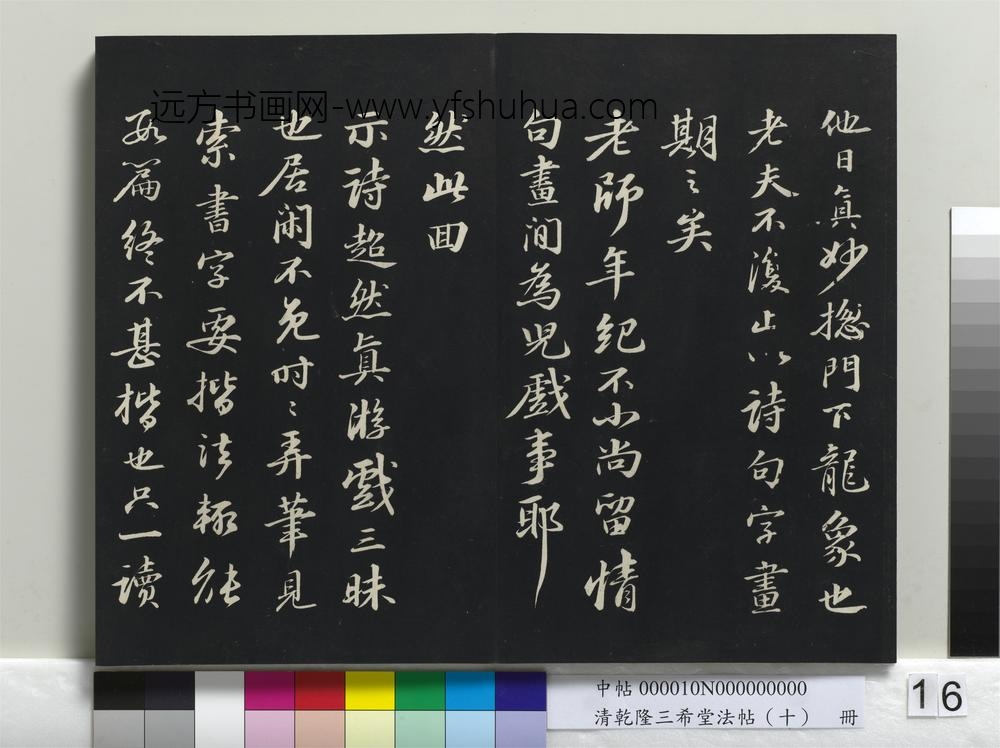 他日真妙揔門下龍象也
老夫不復止以詩句字畫
期之矣
老師年紀不小尚留情
句畫間為児戲事耶
然此回
示詩超然真游戲三昧
也居闲不免时〻弄筆見
索書字要楷法輙往
數篇終不甚楷也只一讀
远方书画网-www.yfshuhua.com
中帖 000010N000000000
清乾隆三希堂法帖（十） 冊
16